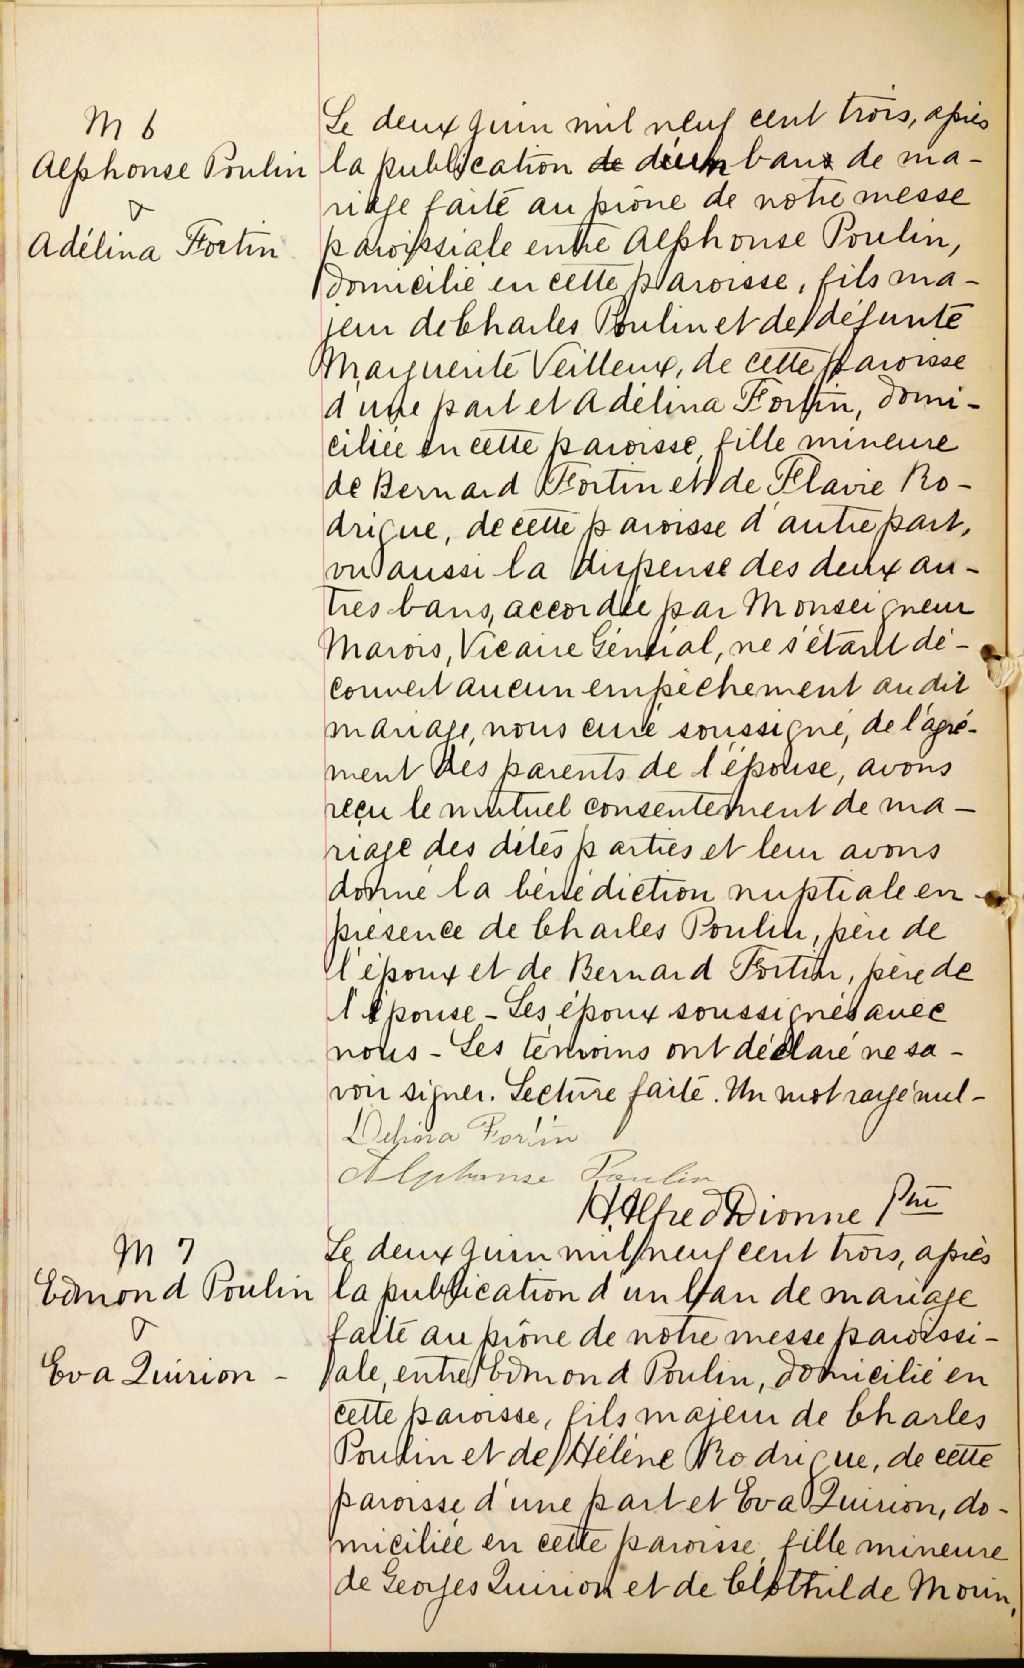 M 6
Alphonse Poulin
&
Adélina Fortin
Le deux juin mil neuf cent trois, après
la publication de d'un bans de ma-
riage faite au prône de notre messe
paroissiale entre Alphonse Poulin,
domicilié en cette paroisse, fils ma-
jeur de Charles Poulin et de défunte
Marguerite Veilleux, de cette paroisse
d'une part et Adélina Fortin, domi-
ciliée en cette paroisse, fille mineure
de Bernard Fortin et de Flavie Ro-
drigue, de cette paroisse d'autre part,
vu aussi la dispense des deux au-
tres bans, accordée par Monseigneur
Marois, Vicaire Général, ne s'étant dé-
couvert aucun empêchement au dit
mariage, nous curé soussigné, de l'agré-
ment des parents de l'épouse, avons
reçu le mutuel consentement de ma-
riage des dites parties et leur avons
donné la bénédiction nuptiale en
présence de Charles Poulin, père de
l'époux et de Bernard Fortin, père de
l'épouse - Les époux soussignés avec
nous - Les témoins ont déclaré ne sa-
voir signer. Lecture faite. Un mot rayé nul -
Delina Fortin
Alphonse Poulin
H. Alfred Dionne Ptre
M 7
Edmond Poulin
&
Eva Quirion -
Le deux juin mil neuf cent trois, après
la publication d'un ban de mariage
faite au prône de notre messe paroissi-
ale, entre Edmond Poulin, domicilié en
cette paroisse, fils majeur de Charles
Poulin et de Hélène Rodrigue, de cette
paroisse d'une part et Eva Quirion, do-
miciliée en cette paroisse, fille mineure
de Georges Quirion et de Clothilde Morin,